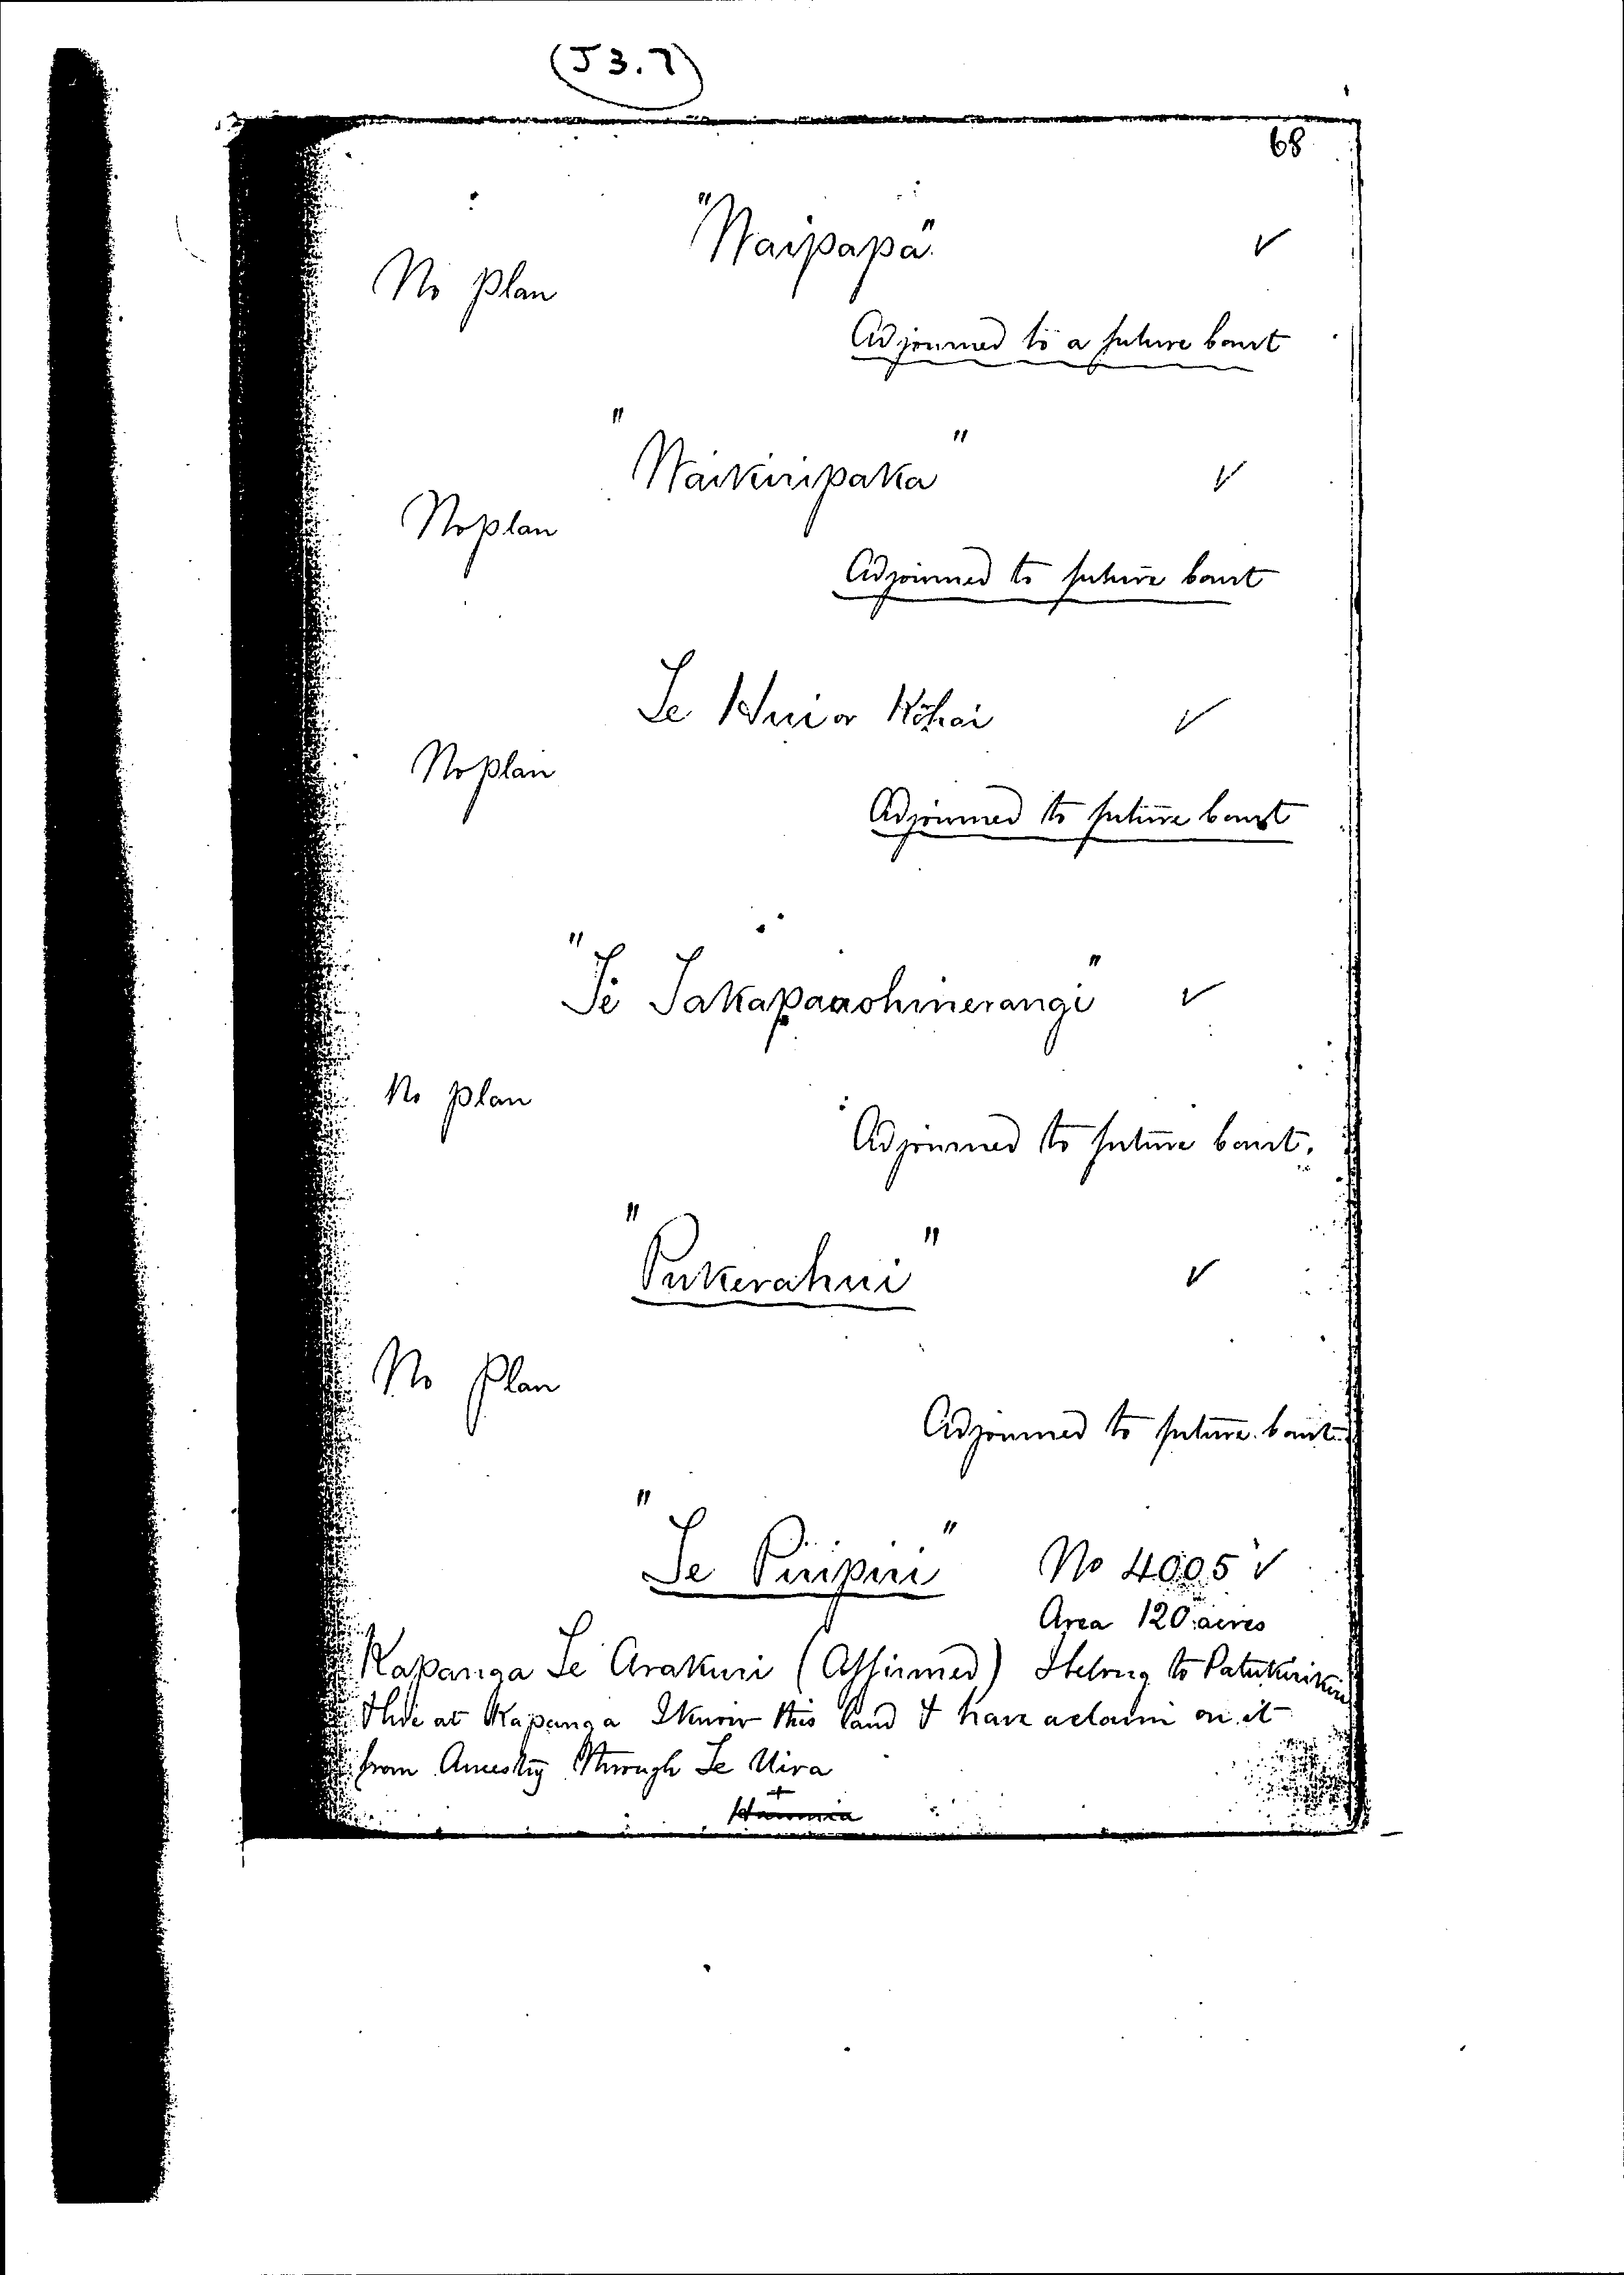 (J 3.7)
68
"Waipapa" ✓
No plan
Adjourned to a future Court
"Waikiripaka" ✓
No plan
Adjourned to future Court
Te Huior Kohai ✓
No plan
Adjourned to future Court
"Te Takapaaohinerangi" ✓
No plan
Adjourned to future Court.
"Pukerahui" ✓
No Plan
Adjourned to future Court
"Te Piripiri" No 4005 ✓
Area 120 acres
Kapanga Te Arakuri (Affirmed) I belong to Patukirikiri
I live at Kapanga I know this land & have a claim on it
from Ancestry through Te Uira